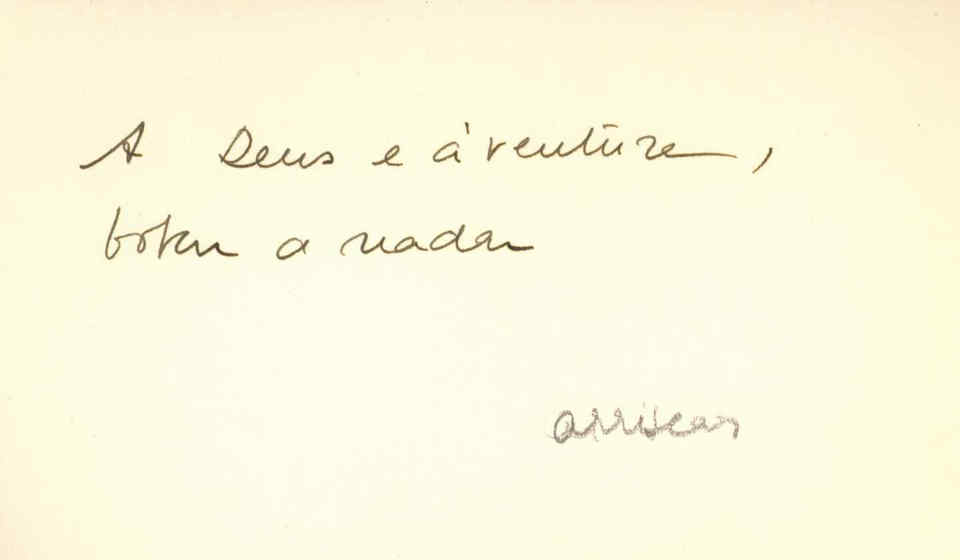 A Deus e à ventura,
botar a nadar
arriscar